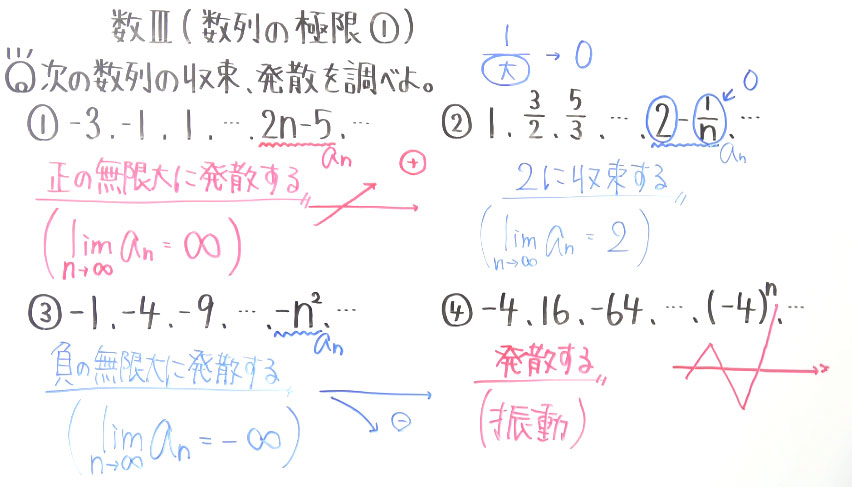 数Ⅲ(数列の極限①)
1/大 → 0
次の数列の収束、発散を調べよ。
① -3、-1、1、… 2n-5、…
an
正の無限大に発散する
+
(lim n→∞ an = ∞)
② 1、3/2、5/3、…、2-1/n、…
0
an
2に収束する
(lim n→∞ an = 2)
③ -1、-4、-9、…、-n²、…
an
負の無限大に発散する
-
(lim n→∞ an = -∞)
④ -4、16、-64、…、(-4)ⁿ、…
発散する
(振動)